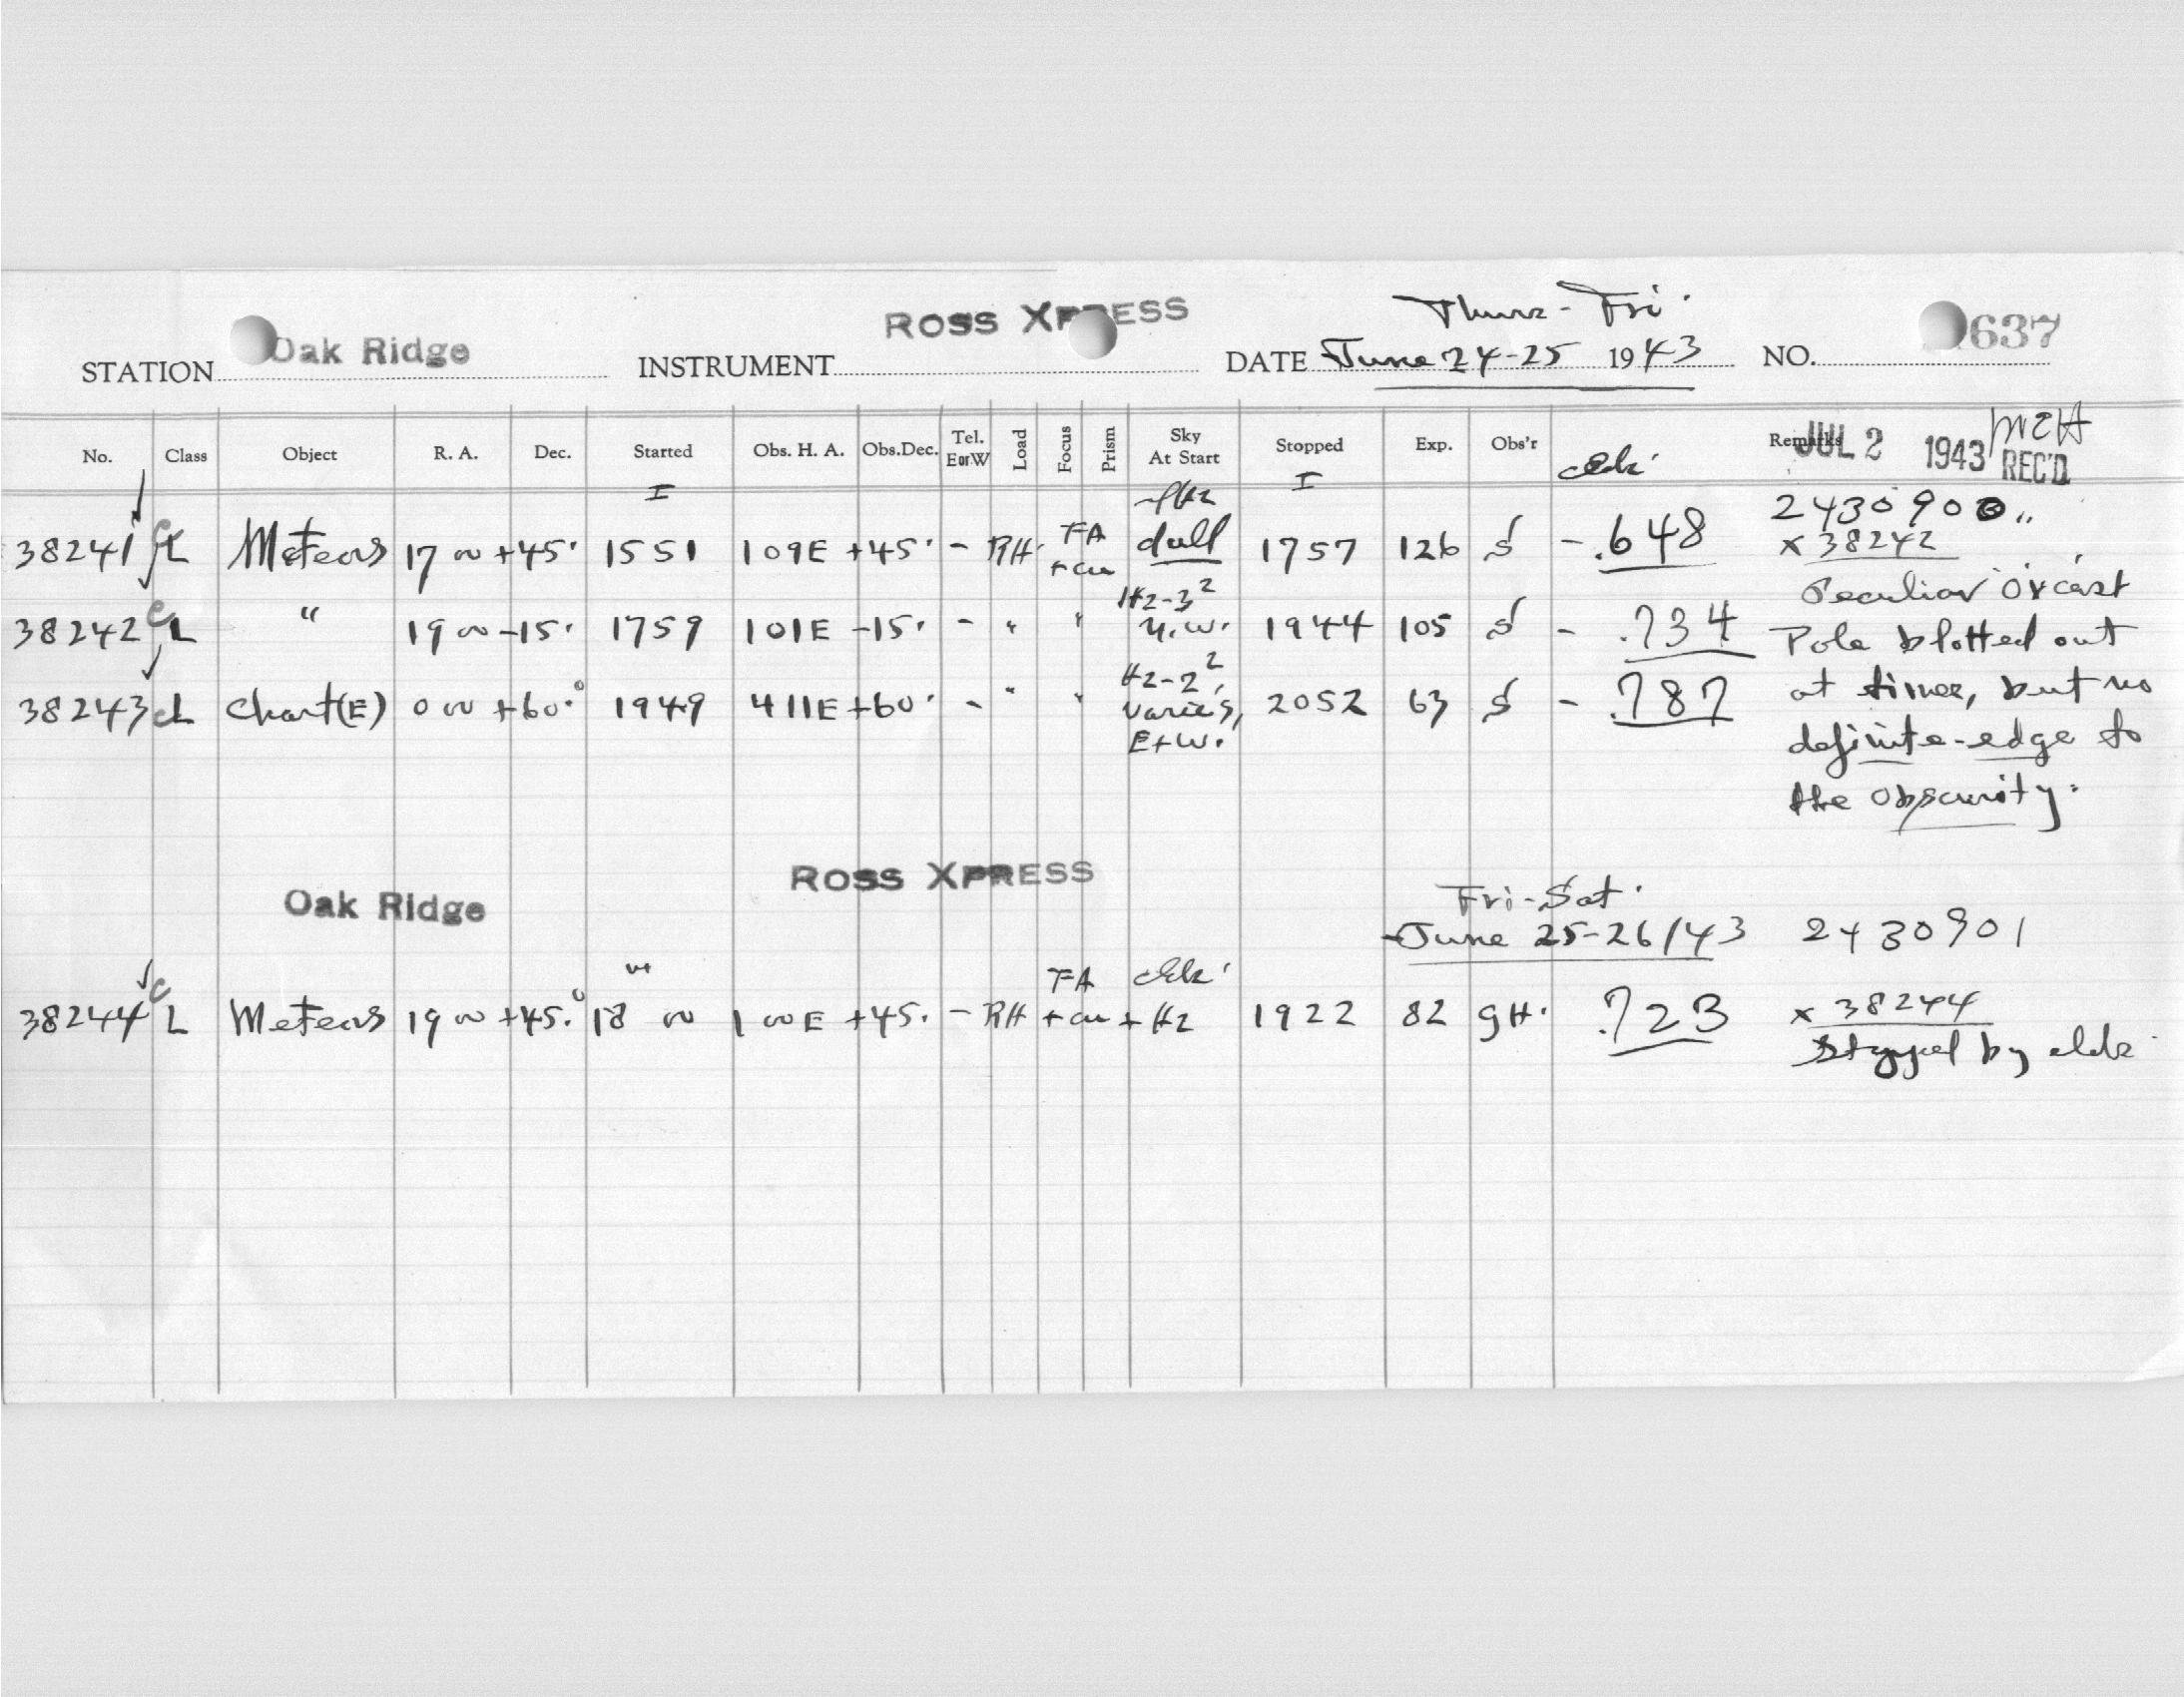 STATION Oak Ridge INSTRUMENT ROSS XPRESS DATE Thurs - Fri. June 24-25 1943 NO. 637
No. Class Object R. A. Dec. Started Obs. H. A. Obs.Dec. Tel. E or W Load Focus Prism Sky At Start Stopped Exp. Obs'r Remarks JUL 2 1943 REC'D
38241 L Meteors 17 00 +45° 1551 109E +45° - RH FA dull 1757 126 S -.648 2430900
x 38242
38242 c L " 19 00 -15° 1759 101E -15° - " " Hz-3² N.W. 1944 105 S -.734 Peculiar Ovcast
Pole blotted out
38243 c L Chart(E) 0 00 +60° 1949 411E +60° - " " Hz-2², varies, E+W. 2052 63 S -.787 at times, but no
definite-edge to
the obscurity.
Oak Ridge ROSS XPRESS Fri-Sat. June 25-26/43 2430901
38244 c L Meteors 19 00 +45° 18 00 1 00E +45. - RH FA + Hz 1922 82 GH. .723 x 38244
Stopped by